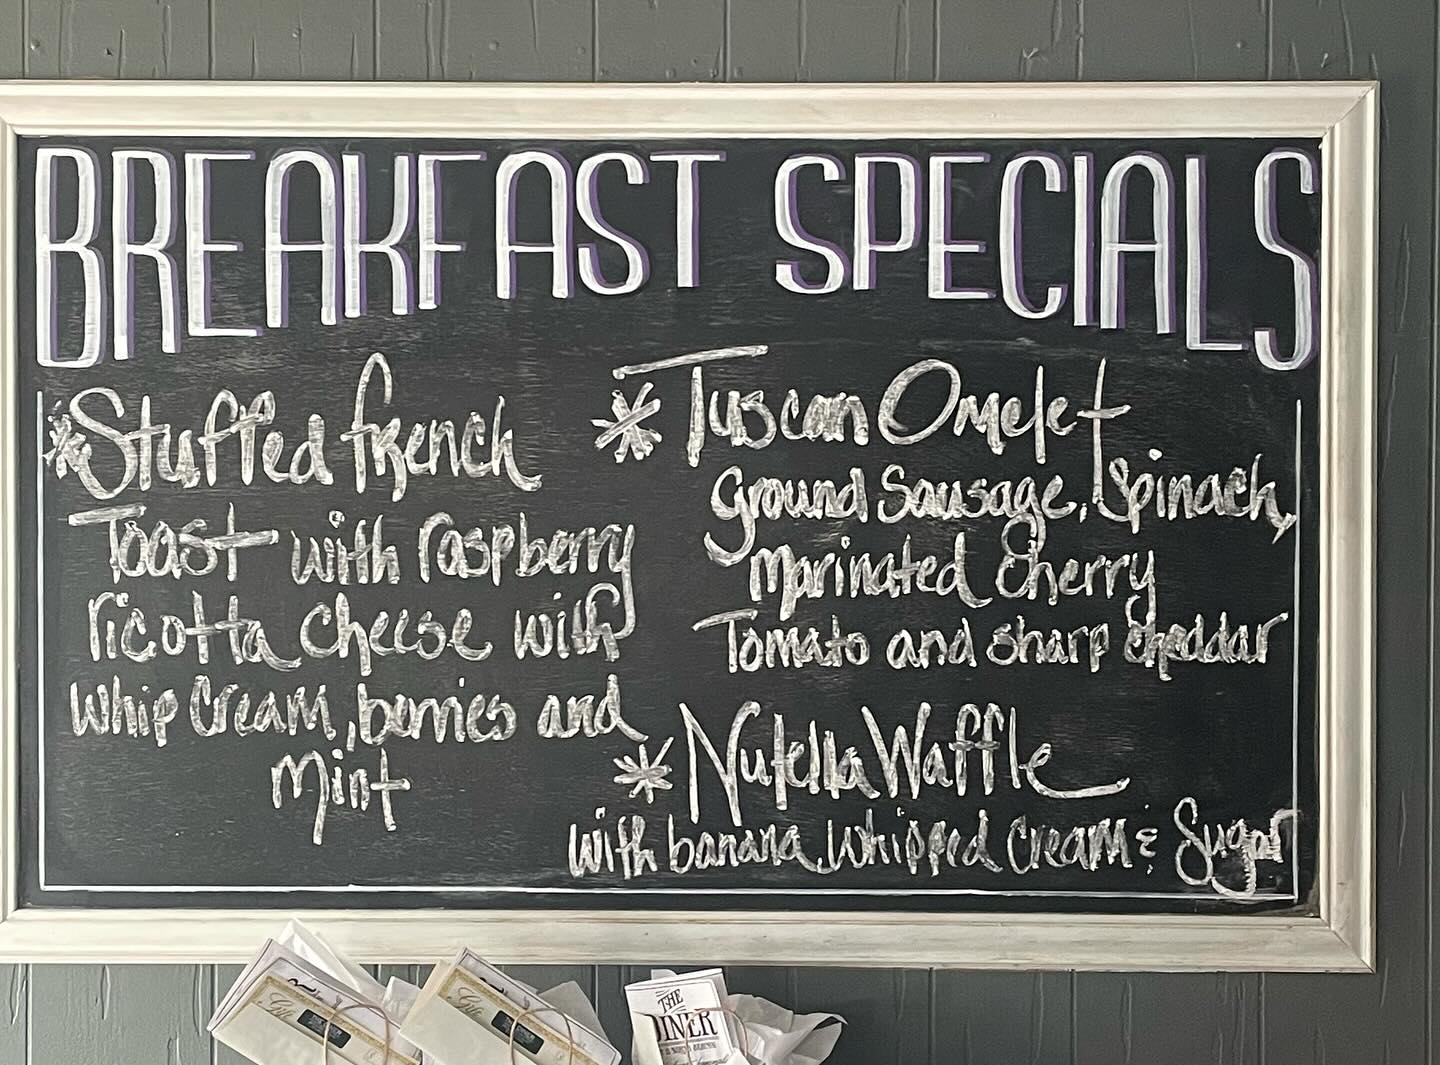 BREAKFAST SPECIALS
* Stuffed French
Toast with raspberry
ricotta cheese with
whip cream, berries and
mint
* Tuscan Omelet
Ground Sausage, Spinach,
marinated Cherry
Tomato and sharp cheddar
* Nutella Waffle
with banana, whipped cream & Sugar
Gift
Gift
THE
DINER